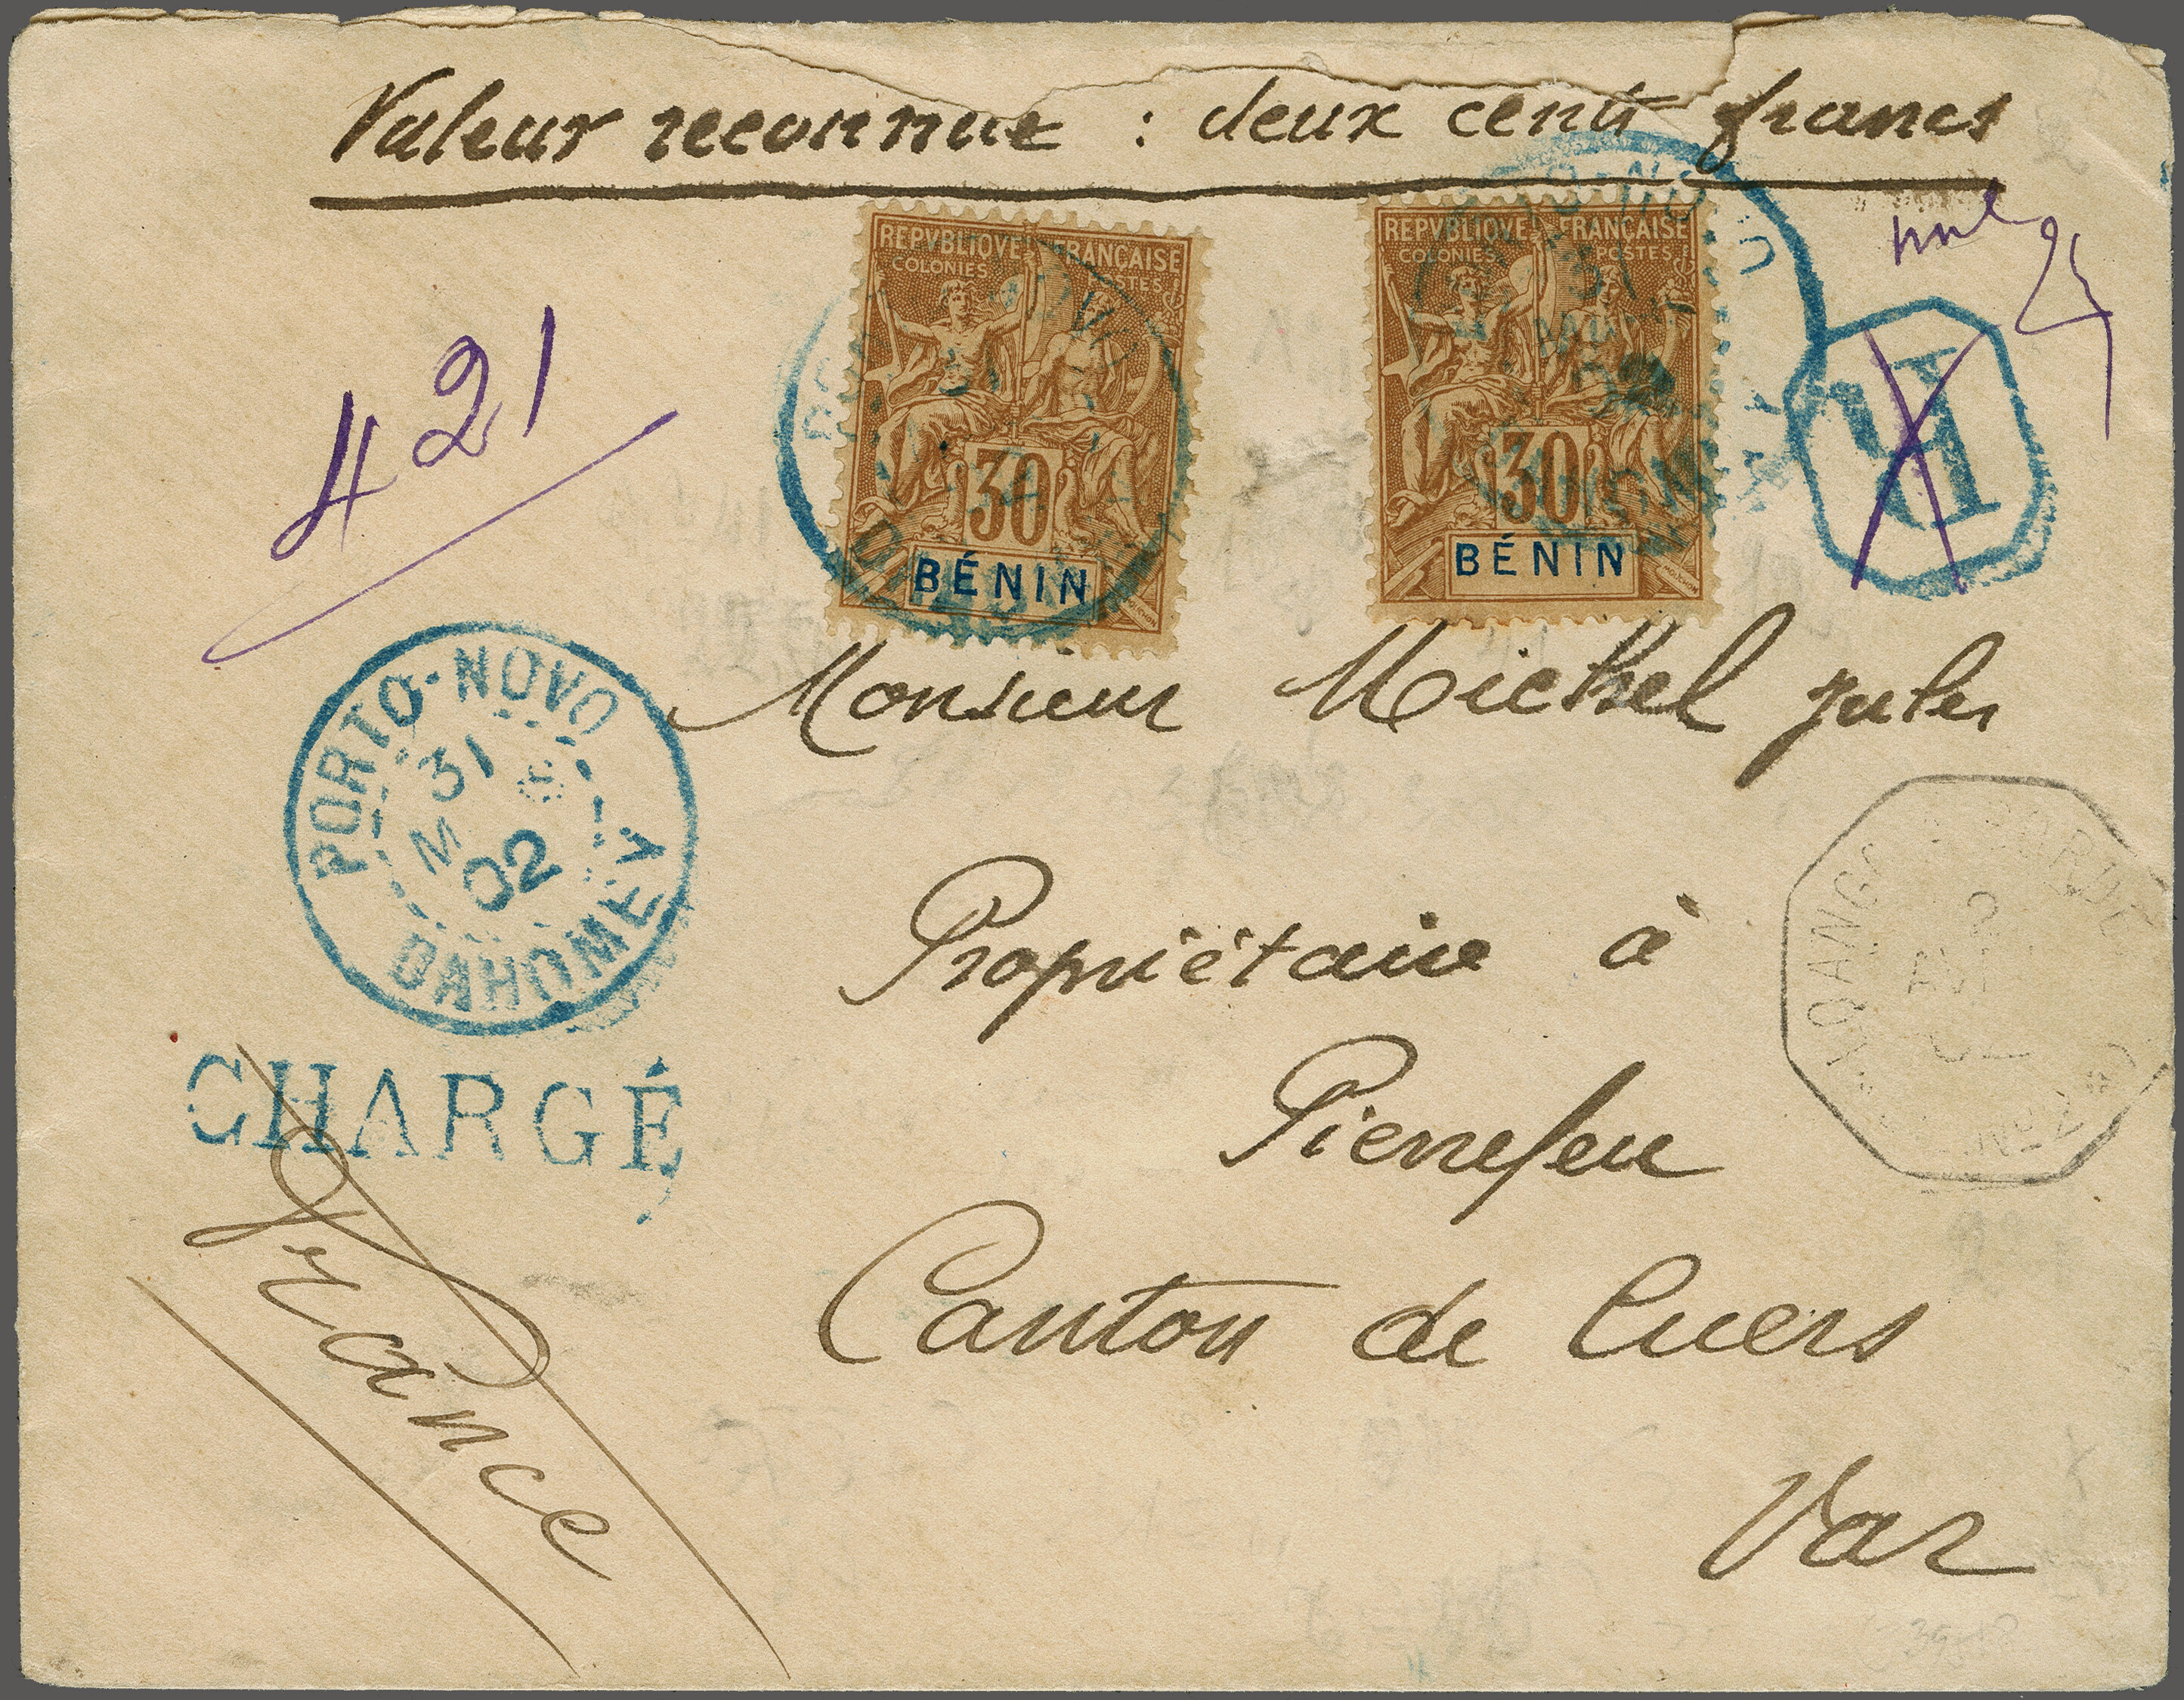 Valeur reconnue : deux cents francs
nul
421
REPVBLIQVE FRANÇAISE
COLONIES POSTES
30
BÉNIN
MOUCHON
REPVBLIQVE FRANÇAISE
COLONIES POSTES
30
BÉNIN
MOUCHON
R
Monsieur Michel Jules
PORTO-NOVO
31
M
02
DAHOMEY
Propriétaire à
Pierrefeu
Canton de Cuers
Var
CHARGÉ
France
LOANGO A BORDE
2
AVR
02